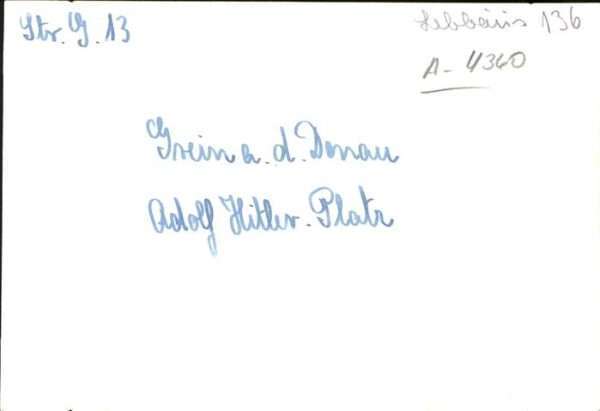 Str. G. 13
136
A-4360
Grein a. d. Donau
Adolf Hitler-Platz